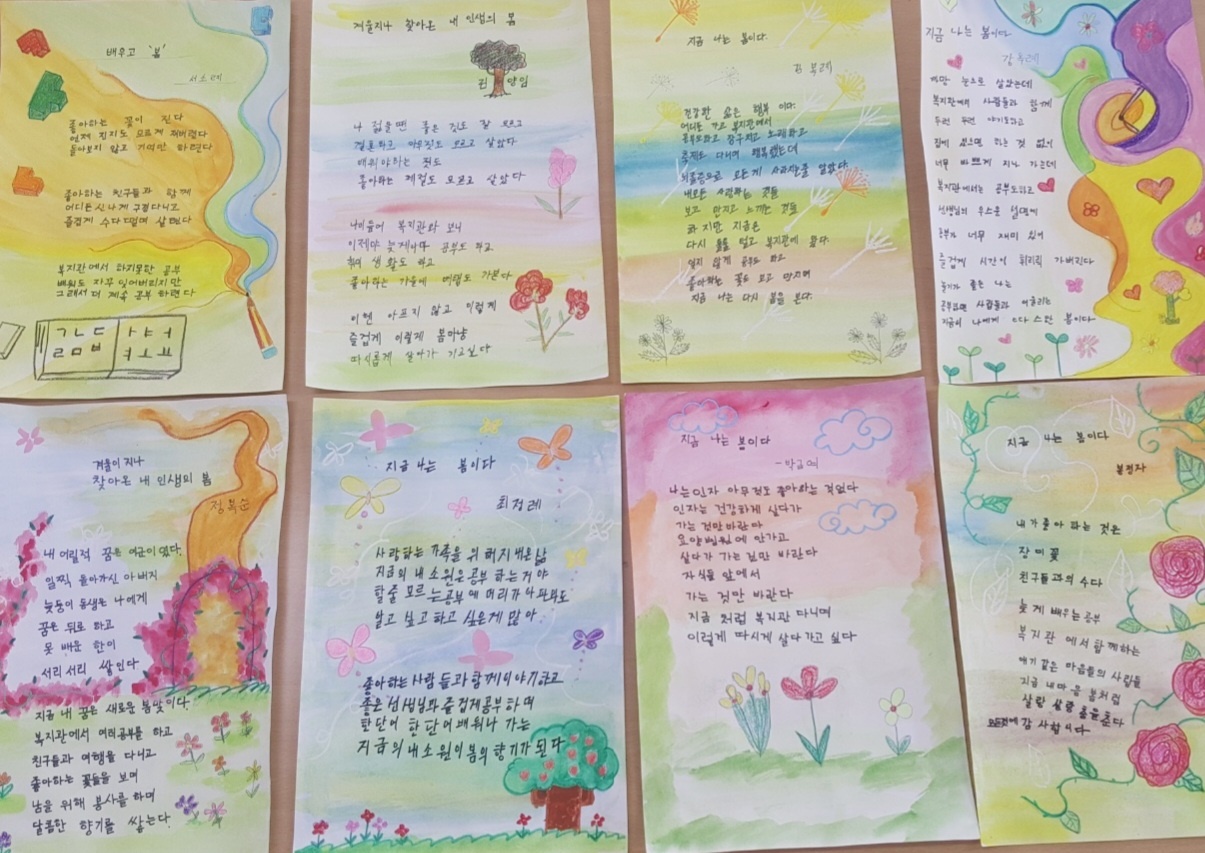 배우고 '봄'
서소례
좋아하는 꽃이 진다
언제 진지도 모르게 져버렸다
돌아보지 않고 기억만 하련다
좋아하는 친구들과 함께
어디든 신나게 구경다니고
즐겁게 수다 떨며 살련다
복지관에서 하지못한 공부
배워도 자꾸 잊어버리지만
그래서 더 계속 공부 하련다
ㄱ ㄴ ㄷ ㅏ ㅑ ㅓ
ㄹ ㅁ ㅂ ㅕ ㅗ ㅛ
겨울지나 찾아온 내 인생의 봄
권 양임
나 젊을땐 좋은 건도 잘 모르고
결혼하고 아무것도 모르고 살았다
배워야하는 것도
좋아하는 계절도 모르고 살았다
나이들어 복지관와 보니
이제야 늦게나마 공부도 하고
취미 생활도 하고
좋아하는 가을에 여행도 가본다
이젠 아프지 않고 이렇게
즐겁게 이렇게 봄마냥
따시롭게 살아가 가고싶다
지금 나는 봄이다.
김 복례
건강한 삶은 행복 이다.
어디든 가고 복지관에서
공부도하고 장구치고 노래하고
축제도 다니며 행복했는데
내모든 사랑하는 것들
보고 만지고 느끼는 것들
하지만 지금은
다시 몸을 털고 복지관에 왔다.
잊지 않게 공부도 하고
좋아하는 꽃도 보고 만지며
지금 나는 다시 봄을 본다.
지금 나는 봄이다
강복례
까망 눈으로 살았는데
복지관에서 사람들과 함께
두런 두런 얘기도하고
집에 있으면 하는 것 없이
너무 바쁘게 지나 가는데
복지관에서는 공부도하고
선생님의 우스운 설명에
공부가 너무 재미 있어
즐겁게 시간이 휘리릭 가버린다
공부하며 사람들과 어울리는
지금이 나에게 따스한 봄이다
겨울이 지나
찾아온 내 인생의 봄
정복순
내 어릴적 꿈은 여군이였다.
일찍 돌아가신 아버지
늦둥이 동생은 나에게
꿈은 뒤로 하고
못 배운 한이
서리서리 쌓인다
지금 내 꿈은 새로운 봄맞이다.
복지관에서 여러공부를 하고
친구들과 여행을 다니고
좋아하는 꽃들을 보며
남을 위해 봉사를 하며
달콤한 향기를 쌓는다.
지금 나는 봄이다
최정례
사랑하는 가족을 위해 지내온 삶
지금의 내 소원은 공부 하는 거야
할줄 모르는 공부에 머리가 나빠도
알고 싶고 하고 싶은게 많아
좋아하는 사람 들과 함께 이야기 하고
좋은 선생님과 즐겁게 공부 하며
한단어 한 단어 배워나 가는
지금의 내 소원이 봄의 향기가 된다
지금 나는 봄이다
-박금예
나는 인자 아무것도 좋아하는 것없다
인자는 건강하게 살다가
가는 것만 바란다
요양병원에 안가고
살다가 가는 것만 바란다
자식들 앞에서
가는 것만 바란다
지금 처럼 복지관 다니며
이렇게 따시게 살다 가고 싶다
지금 나는 봄이다
봉정자
내가 좋아 하는 것은
장미꽃
친구들과의 수다
늦게 배우는 공부
복지관 에서 함께하는
애기 같은 마음들의 사람들
지금 내 마음 봄처럼
살랑 살랑 춤을 춘다
감사함이다